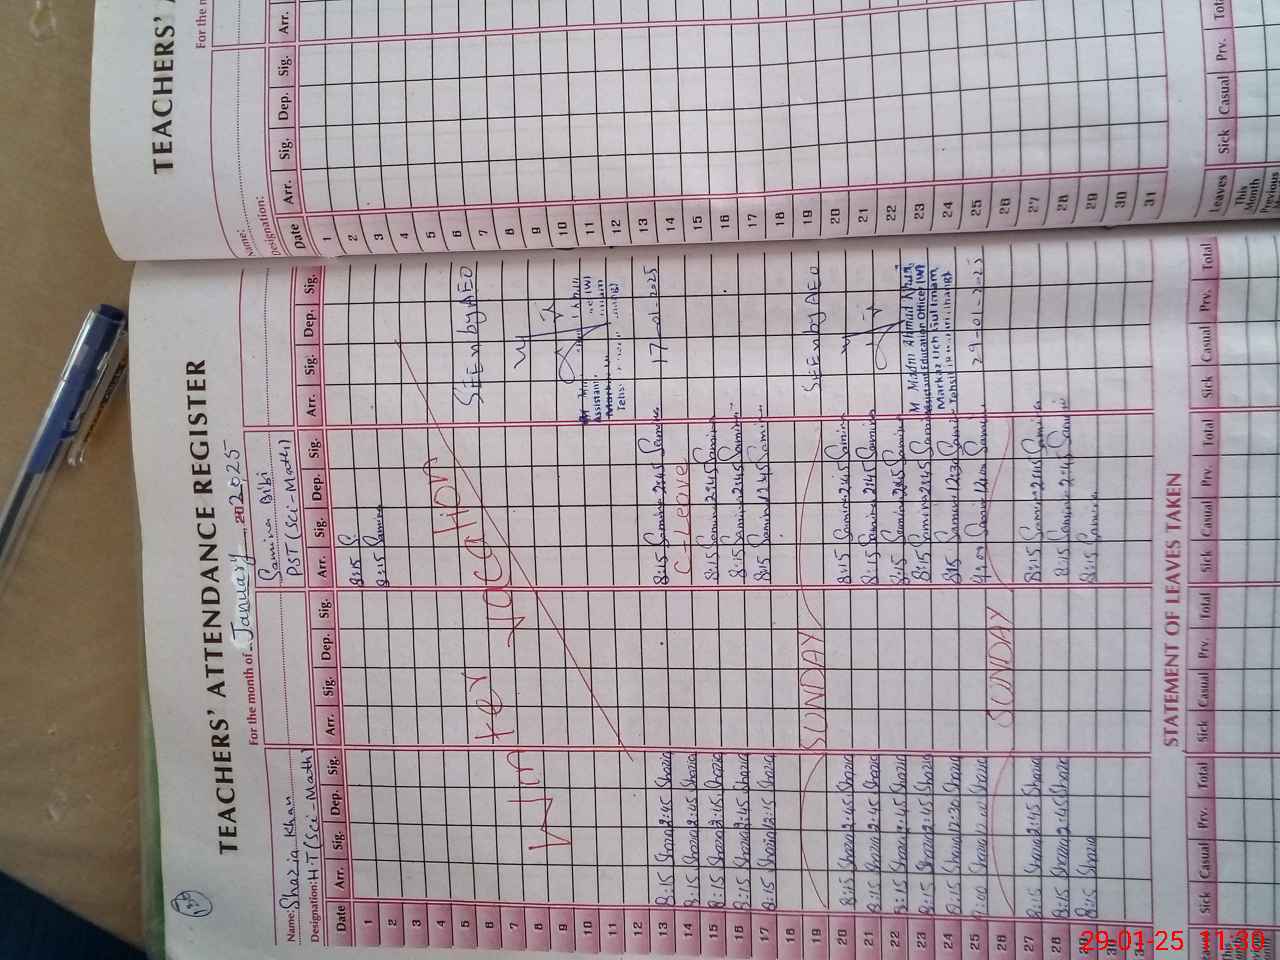 TEACHERS' ATTENDANCE REGISTER
For the month of January 2025
Name: Shazia Khan
Designation: H.T (Sci-Math)
Samina Bibi
PST (Sci-Math)
Date Arr. Sig. Dep. Sig. Arr. Sig. Dep. Sig. Arr. Sig. Dep. Sig. Arr. Sig. Dep. Sig.
1 8:15
2 8:15 Samina
3
4
5
6
7
8
9
10
11
12
Winter Vacation
13 8:15 Shazia 2:45 Shazia 8:15 Samina 2:45 Samina
14 8:15 Shazia 2:45 Shazia C-Leave
15 8:15 Shazia 2:45 Shazia 8:15 Samina 2:45 Samina
16 8:15 Shazia 2:45 Shazia 8:15 Samina 2:45 Samina
17 8:15 Shazia 12:15 Shazia 8:15 Samina 12:45 Samina
18
19 SUNDAY
20 8:15 Shazia 2:45 Shazia 8:15 Samina 2:45 Samina
21 8:15 Shazia 2:45 Shazia 8:15 Samina 2:45 Samina
22 8:15 Shazia 2:45 Shazia 8:15 Samina 2:45 Samina
23 8:15 Shazia 2:45 Shazia 8:15 Samina 2:45 Samina
24 8:15 Shazia 12:30 Shazia 8:15 Samina 12:30 Samina
25 Shazia Shazia 9:00 Samina Samina
26 SUNDAY
27 8:15 Shazia 2:45 Shazia 8:15 Samina 2:45 Samina
28 8:15 Shazia 2:45 Shazia 8:15 Samina 2:45 Samina
29 8:15 Shazia 8:15 Samina
30
SEEN by AEO
Assistant
17-01-2025
SEEN by AEO
M Madni Ahmad Khan
Assistant Education Officer (W)
Markaz Uch Gul Imam
29-01-2025
STATEMENT OF LEAVES TAKEN
Sick Casual Prv. Total Sick Casual Prv. Total Sick Casual Prv. Total Sick Casual Prv. Total
TEACHERS'
For the
Name:
Designation:
Date Arr. Sig. Dep. Sig. Arr.
1
2
3
4
5
6
7
8
9
10
11
12
13
14
15
16
17
18
19
20
21
22
23
24
25
26
27
28
29
30
31
Leaves Sick Casual Prv.
This Month
Previous
29-01-25 11:30